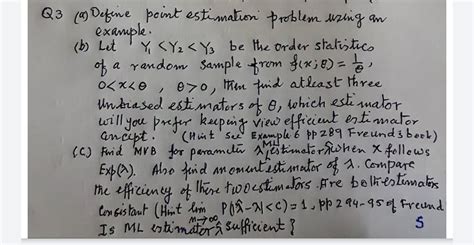 Q3 (a) Define point estimation problem using an
example.
(b) Let Y₁ < Y₂ < Y₃ be the order statistics
of a random sample from f(x;θ) = 1/θ,
0<x<θ, θ>0, then find atleast three
Unbiased estimators of θ, which estimator
will you prefer keeping view efficient estimator
concept. (Hint See Example 6 pp 289 Freund's book)
(C) Find MVB for parameter λ ML estimator, when X follows
Exp(λ). Also find moment estimator of λ. Compare
the efficiency of these two estimators. Are both estimators
Consistant (Hint lim n→∞ P(|λ̂-λ|<C)=1, pp 294-95 of Freund
Is ML estimator sufficient? 5